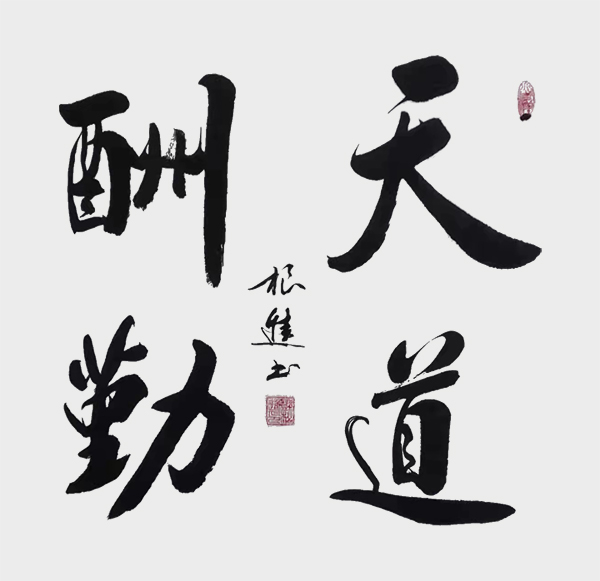 天道
酬勤
根進书